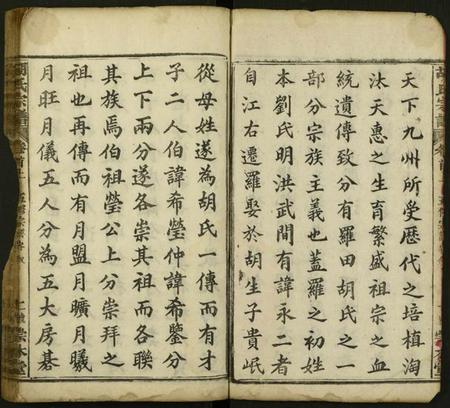 天下九州所受歷代之培植淘
汰天惠之生育繁盛祖宗之血
統遺傳致分有羅田胡氏之一
部分宗族主義也蓋羅之初姓
本劉氏明洪武間有諱永二者
自江右遷羅娶於胡生子貴岷
從母姓遂為胡氏一傳而有才
子二人伯諱希瑩仲諱希鑒分
上下兩分遂各崇其祖而各聯
其族焉伯祖瑩公上分崇拜之
祖也再傳而有月盟月曠月曦
月旺月儀五人分為五大房碁
胡氏宗譜
卷首